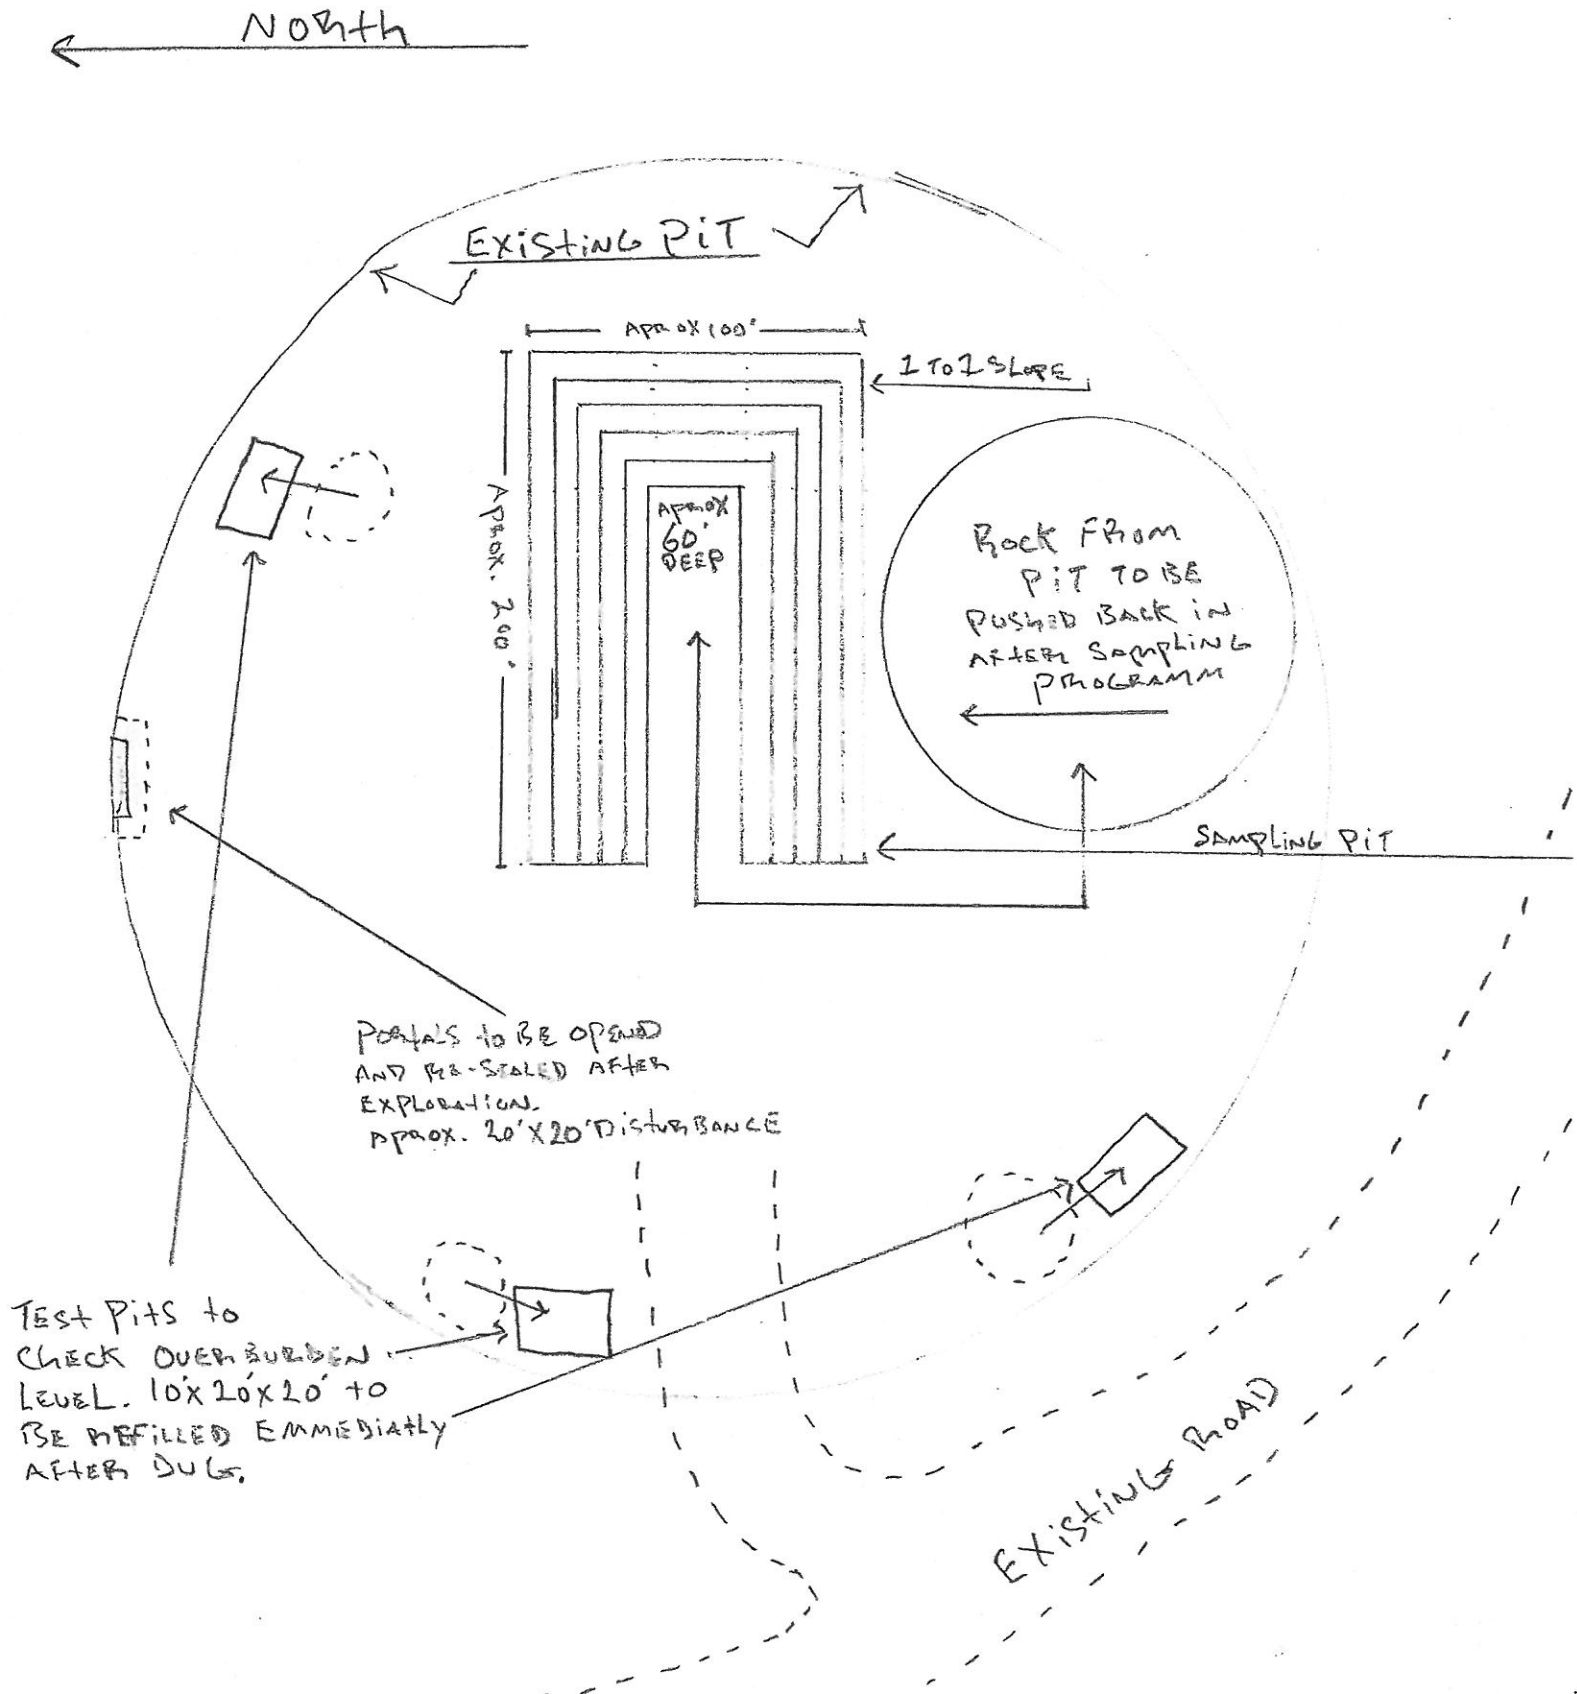 NORth
EXiStiNG PiT
APROX 100'
1 TO 1 SLOPE
APROX. 200'
APROX
60'
DEEP
ROCK FROM
PiT TO BE
PUSHED BACK IN
AFTER SAMPLING
PROGRAMM
SAMPLING PiT
PORtALS to BE OPEND
AND RE-SEALED AFTER
EXPLORAtION.
APROX. 20'X20' DistURBANCE
TESt PitS to
CHECK OVERBURDEN
LEVEL. 10'X20'X20' tO
BE REFiLLED EMMEDIAtLy
AFtER DUG.
EXiStiNG ROAD